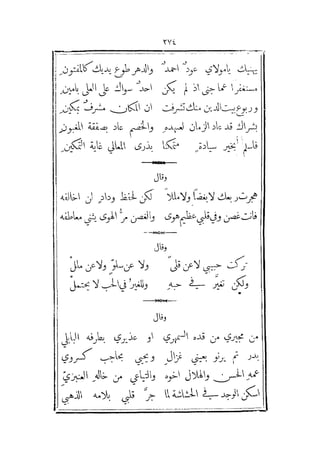 ٢٧٤
يهنيك يامولاي عود احمد والدهر طوع يديك كالمفتون
مستغفرا عما جنى اذ لم يكن احد سواك على العلى بامين
وربوع بيت الدين منك تشرفت ان المكان مشرف بمكين
بشراك قد عاد الزمان لعبده والخصم عاد بصفقة المغبون
فاسلم بخير سيادة متمكنا بذرى المعالي غاية التمكين
وقال
هجرت ربعك لا بغضا ولا مللا لكن لحفظ وداد لن اخالفه
فانت غصن وفي قلبي عظيم هوى والغصن مر الهوى يثني معاطفه
وقال
تركت حبيبي لا عن قلى ولا عن سلو ولا عن ملل
ولكن تغير في حبه وللغير في الحب لا يحتمل
وقال
من مجيري من قده السمهري او عذيري بطرفه البابلي
بدر تم يرنو بعيني غزال ويحيي بحاجب كسروي
عمه الحسن والهلال اخوه والتياعي من خاله العنبري
اسكن الوجد في الحشاشة لما جر قلبي بلامه الذهبي